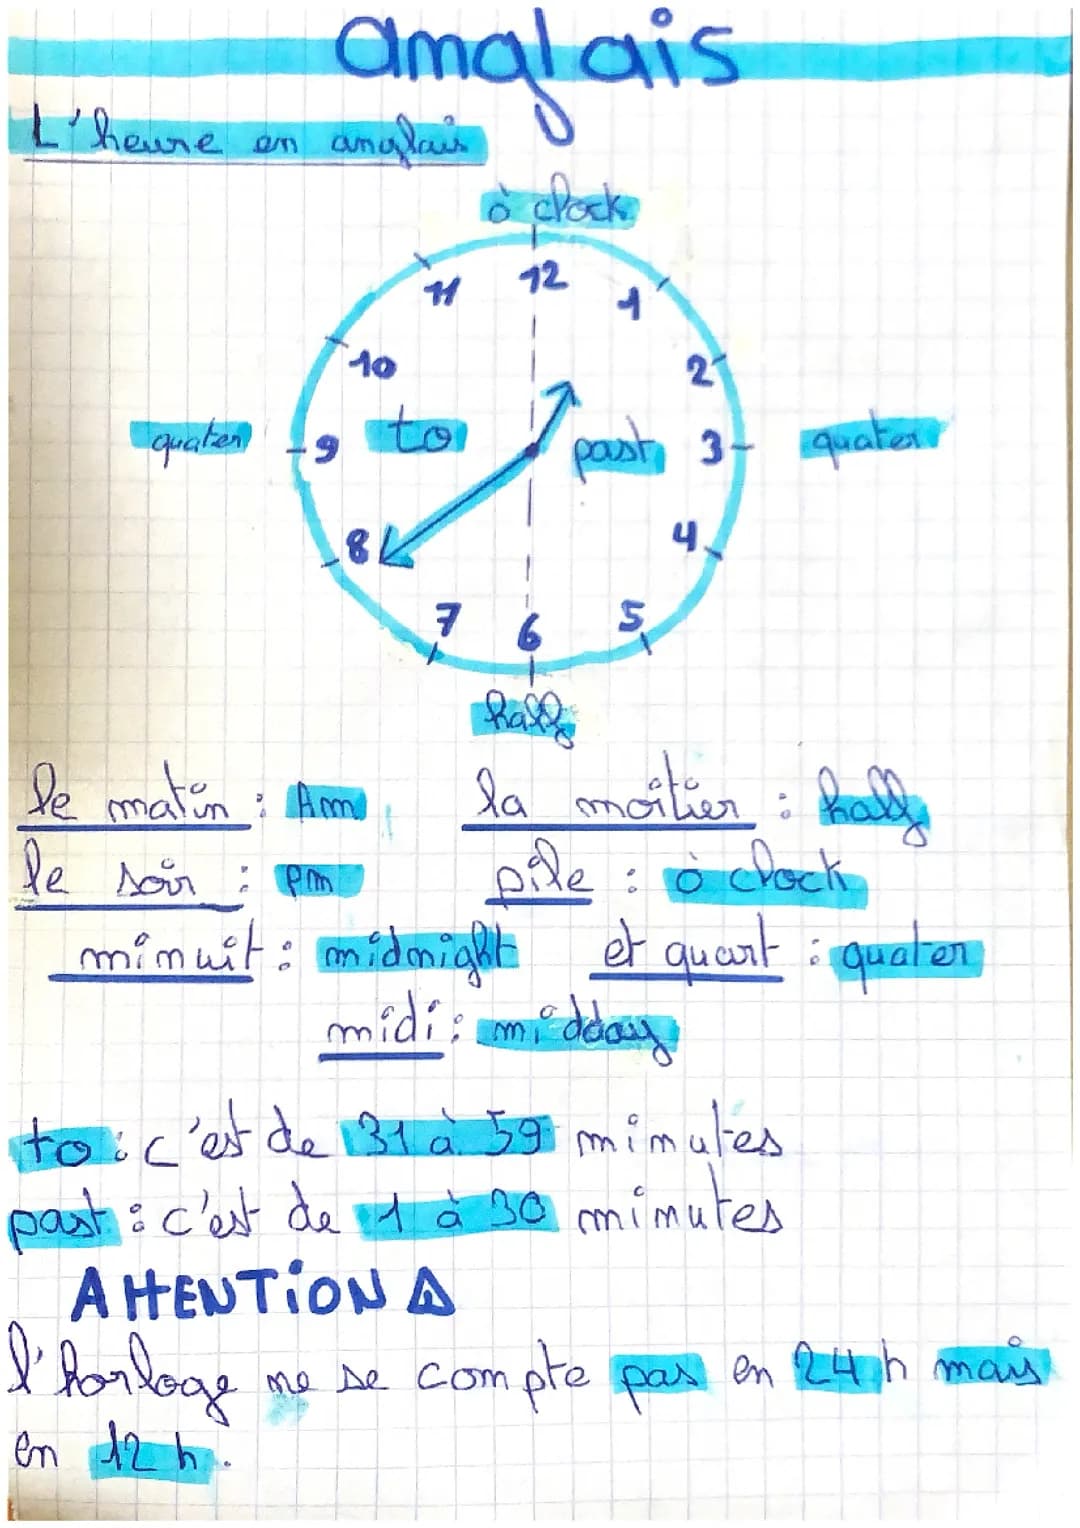 anglais
L'heure en anglais
ò clock
11 12 1
10 2
quater 9 to past 3 quater
8 4
7 6 5
half
le matin : Am la moitier : half
le soir : pm pile : ò clock
minuit : midnight et quart : quater
midi : midday
to : c'est de 31 à 59 minutes
past : c'est de 1 à 30 minutes
ATTENTION
l'horloge ne se compte pas en 24 h mais
en 12 h.